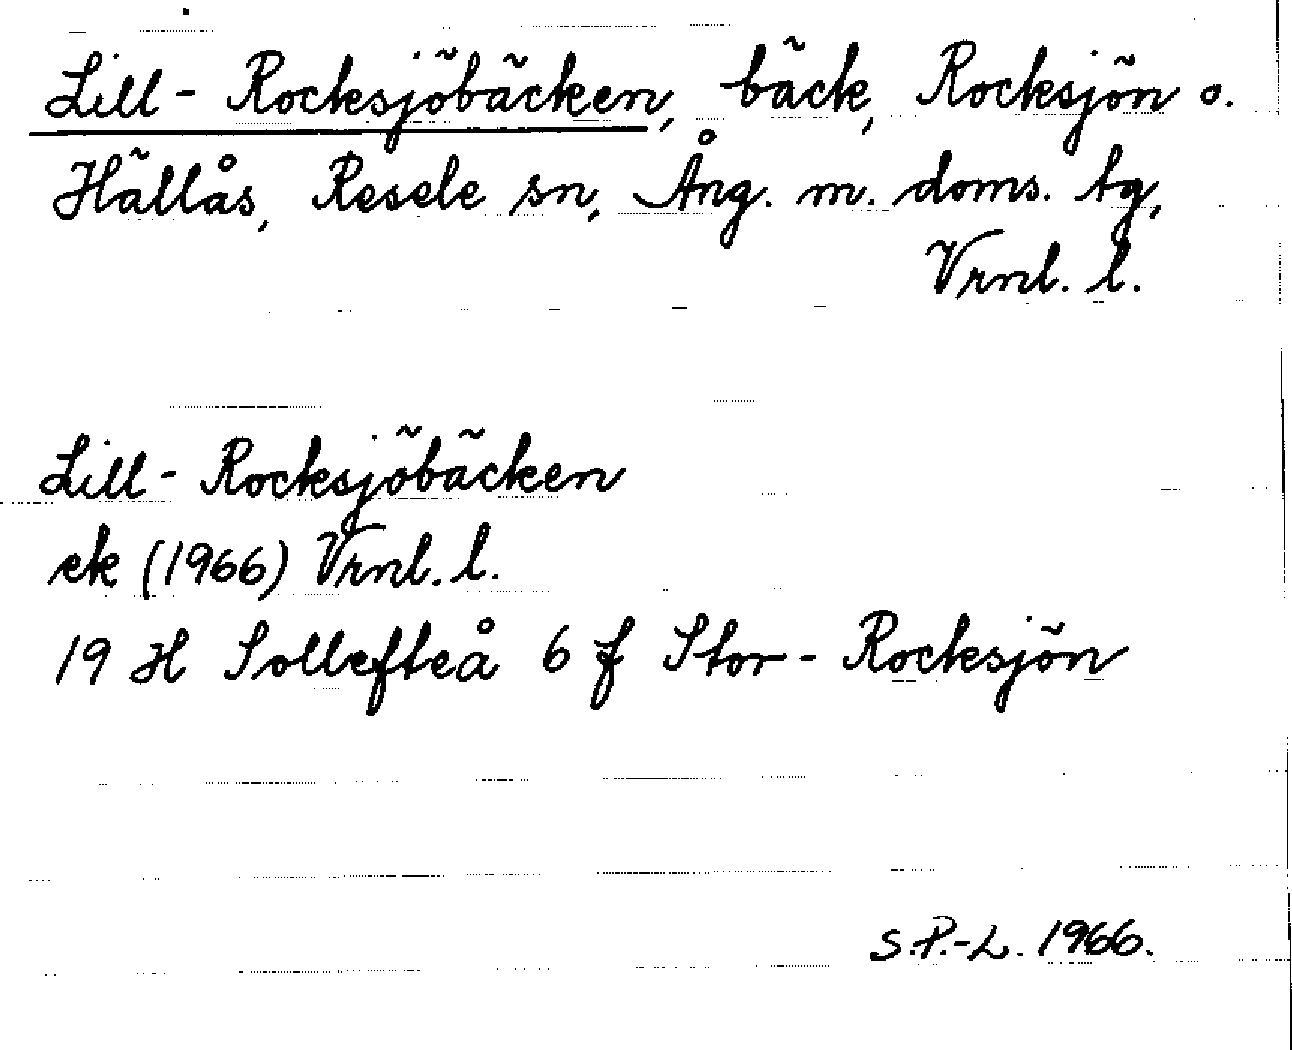 Lill-Rocksjöbäcken, bäck, Rocksjön o.
Hällås, Resele sn, Ång. m. doms. tg,
Vrnl. l.
Lill-Rocksjöbäcken
ek (1966) Vrnl. l.
19 H Sollefteå 6 f Stor-Rocksjön
S.P.-L. 1966.